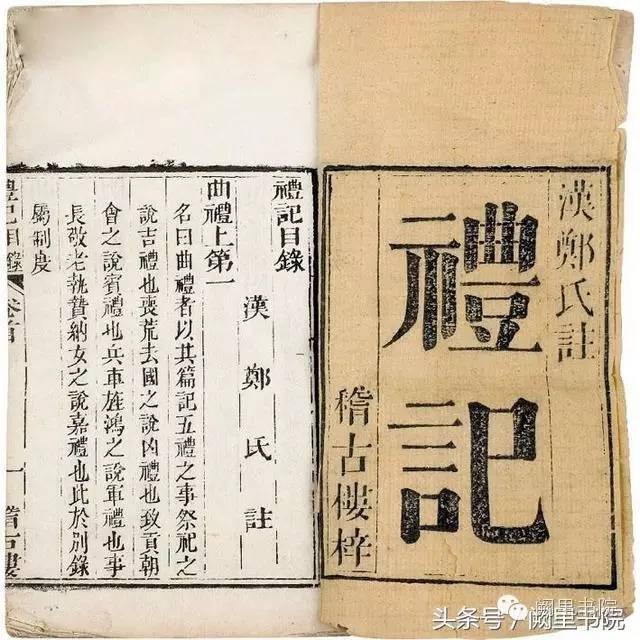 漢鄭氏註
禮記
稽古樓梓
禮記目錄
漢鄭氏註
曲禮上第一
名曰曲禮者以其篇記五禮之事祭祀之
說吉禮也喪荒去國之說凶禮也致貢朝
會之說賓禮也兵車旌鴻之說軍禮也事
長敬老執贄納女之說嘉禮也此於別錄
屬制度
禮記目錄 卷首 一 稽古樓
头条号/阙里书院
阙里书院